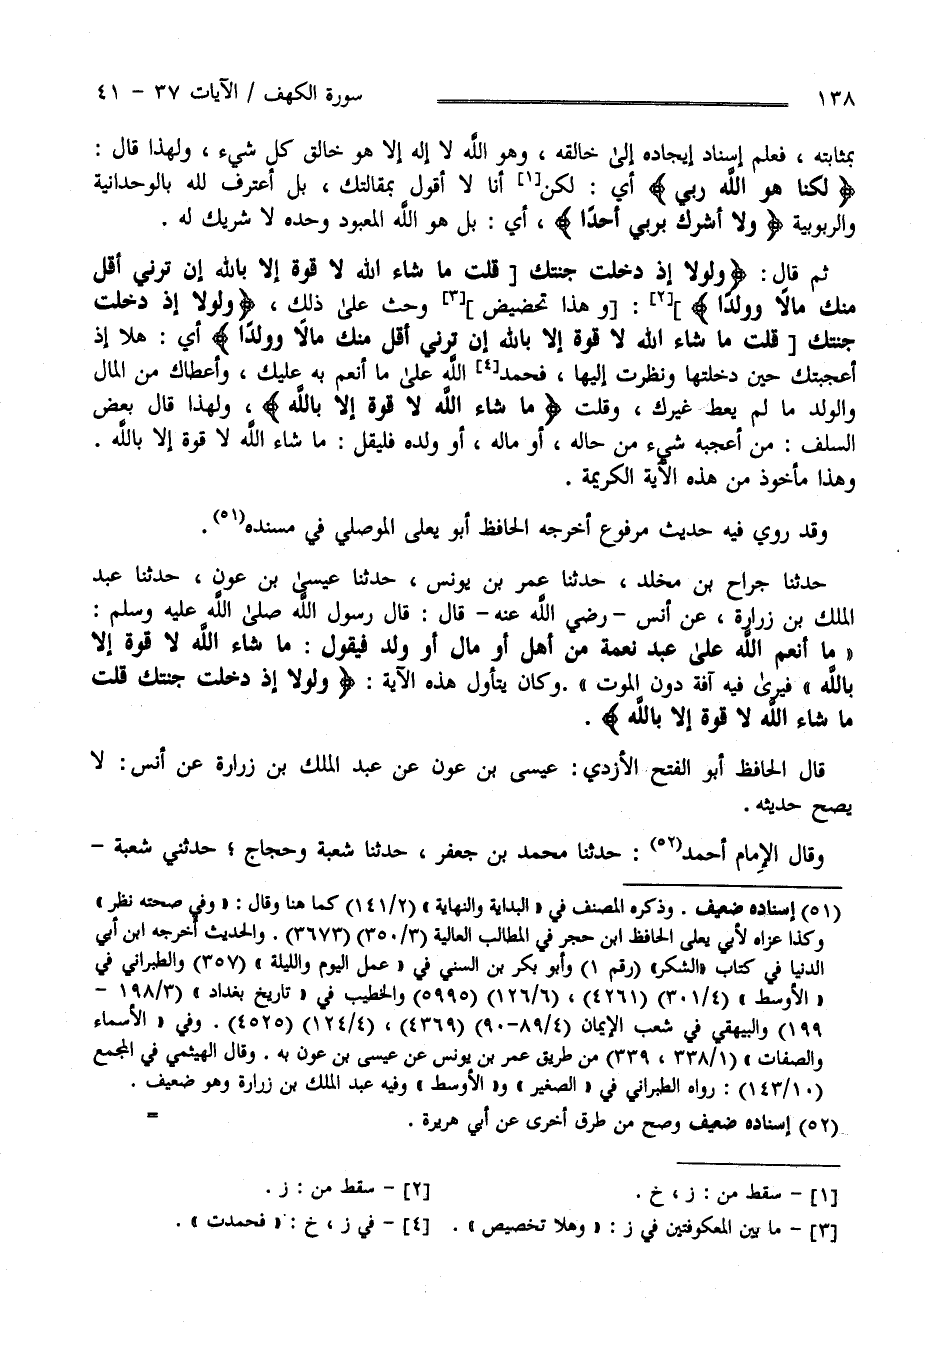 ١٣٨ سورة الكهف / الآيات ٣٧ - ٤١
بمثابته ، فعلم إسناد إيجاده إلىٰ خالقه ، وهو اللَّه لا إله إلا هو خالق كل شيء ، ولهذا قال :
﴿ لكنا هو اللَّه ربي ﴾ أي : لكن[١] أنا لا أقول بمقالتك ، بل أعترف لله بالوحدانية
والربوبية ﴿ ولا أشرك بربي أحدًا ﴾ ، أي : بل هو اللَّه المعبود وحده لا شريك له .
ثم قال : ﴿ولولا إذ دخلت جنتك [ قلت ما شاء الله لا قوة إلا بالله إن ترني أقل
منك مالًا وولدًا ﴾ ][٢] : [و هذا تحضيض ][٣] وحث علىٰ ذلك ، ﴿ولولا إذ دخلت
جنتك [ قلت ما شاء الله لا قوة إلا بالله إن ترني أقل منك مالًا وولدًا ﴾ أي : هلا إذ
أعجبتك حين دخلتها ونظرت إليها ، فحمد[٤] اللَّه علىٰ ما أنعم به عليك ، وأعطاك من المال
والولد ما لم يعط غيرك ، وقلت ﴿ ما شاء اللَّه لا قوة إلا باللَّه ﴾ ، ولهذا قال بعض
السلف : من أعجبه شيء من حاله ، أو ماله ، أو ولده فليقل : ما شاء اللَّه لا قوة إلا باللَّه .
وهذا مأخوذ من هذه الآية الكريمة .
وقد روي فيه حديث مرفوع أخرجه الحافظ أبو يعلى الموصلي في مسنده(٥١).
حدثنا جراح بن مخلد ، حدثنا عمر بن يونس ، حدثنا عيسىٰ بن عون ، حدثنا عبد
الملك بن زرارة ، عن أنس -رضي اللَّه عنه- قال : قال رسول اللَّه صلىٰ اللَّه عليه وسلم :
« ما أنعم اللَّه علىٰ عبد نعمة من أهل أو مال أو ولد فيقول : ما شاء اللَّه لا قوة إلا
باللَّه » فيرىٰ فيه آفة دون الموت » .وكان يتأول هذه الآية : ﴿ ولولا إذ دخلت جنتك قلت
ما شاء اللَّه لا قوة إلا باللَّه ﴾ .
قال الحافظ أبو الفتح الأزدي : عيسى بن عون عن عبد الملك بن زرارة عن أنس : لا
يصح حديثه .
وقال الإمام أحمد(٥٢) : حدثنا محمد بن جعفر ، حدثنا شعبة وحجاج ؛ حدثني شعبة -
(٥١) إسناده ضعيف . وذكره المصنف في « البداية والنهاية » (١٤١/٢) كما هنا وقال : « وفي صحته نظر »
وكذا عزاه لأبي يعلى الحافظ ابن حجر في المطالب العالية (٣٥٠/٣) (٣٦٧٣) . والحديث أخرجه ابن أبي
الدنيا في كتاب «الشكر» (رقم ١) وأبو بكر بن السني في « عمل اليوم والليلة » (٣٥٧) والطبراني في
« الأوسط » (٣٠١/٤) (٤٢٦١) ، (١٢٦/٦) (٥٩٩٥) والخطيب في « تاريخ بغداد » (١٩٨/٣ -
١٩٩) والبيهقي في شعب الإيمان (٨٩/٤-٩٠) (٤٣٦٩) ، (١٢٤/٤) (٤٥٢٥) . وفي « الأسماء
والصفات » (٣٣٨/١ ، ٣٣٩) من طريق عمر بن يونس عن عيسى بن عون به . وقال الهيثمي في المجمع
(١٤٣/١٠) : رواه الطبراني في « الصغير » و« الأوسط » وفيه عبد الملك بن زرارة وهو ضعيف .
(٥٢) إسناده ضعيف وصح من طرق أخرى عن أبي هريرة . =
[١] - سقط من : ز ، خ . [٢] - سقط من : ز .
[٣] - ما بين المعكوفتين في ز : « وهلا تخصيص » . [٤] - في ز ، خ : « فحمدت » .